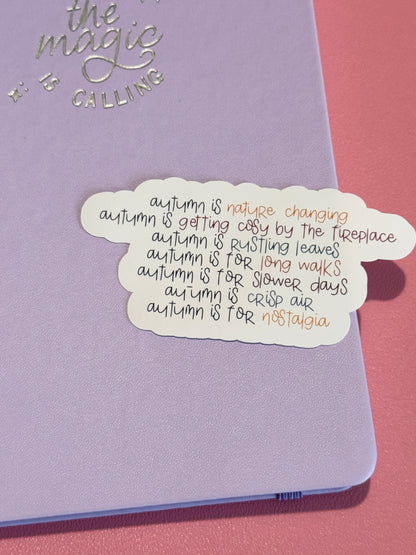 the
magic
is CALLING
autumn is nature changing
autumn is getting cosy by the fireplace
autumn is rustling leaves
autumn is for long walks
autumn is for slower days
autumn is crisp air
autumn is for nostalgia